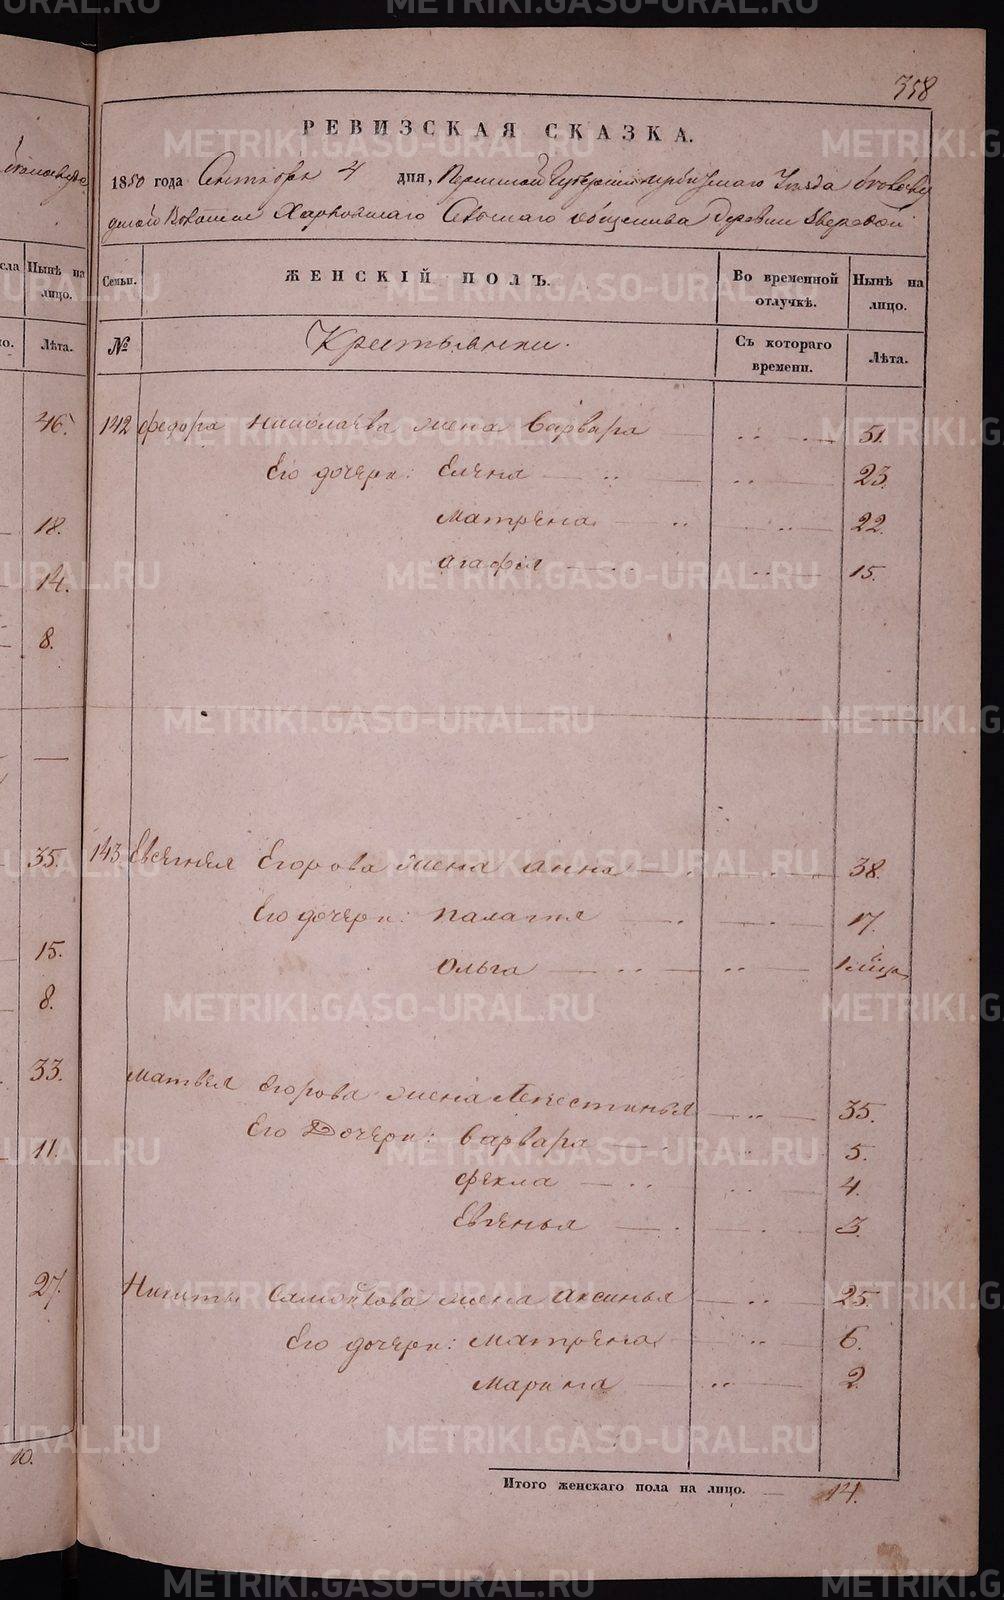 358
РЕВИЗСКАЯ СКАЗКА.
1850 года Сентября 4 дня, Пермской Губернии Ирбитскаго Уезда
Волости Харловскаго Сельскаго общества Деревни Зверевой
сла Нынѣ на лицо.
Семьи. ЖЕНСКІЙ ПОЛЪ. Во временной отлучкѣ. Нынѣ на лицо.
Лѣта. № Крестьянки. Съ котораго времени. Лѣта.
46. 142 Федора Николаева жена Варвара 51.
Его дочери: Елена 23.
18. Матрена 22.
14. Агафiя 15.
8.
35. 143 Евсегнея Егорова жена Анна 38.
Его дочери: Палагия 17.
15. Ольга
8.
33. Матвея Егорова жена 35.
11. Его Дочери: Варвара 5.
Фекла 4.
Евгенья 3.
27. Никиты Самойлова жена Аксинья 25.
Его дочери: Матрена 6.
Марина 2.
10.
Итого женскаго пола на лицо. 14.
METRIKI.GASO-URAL.RU